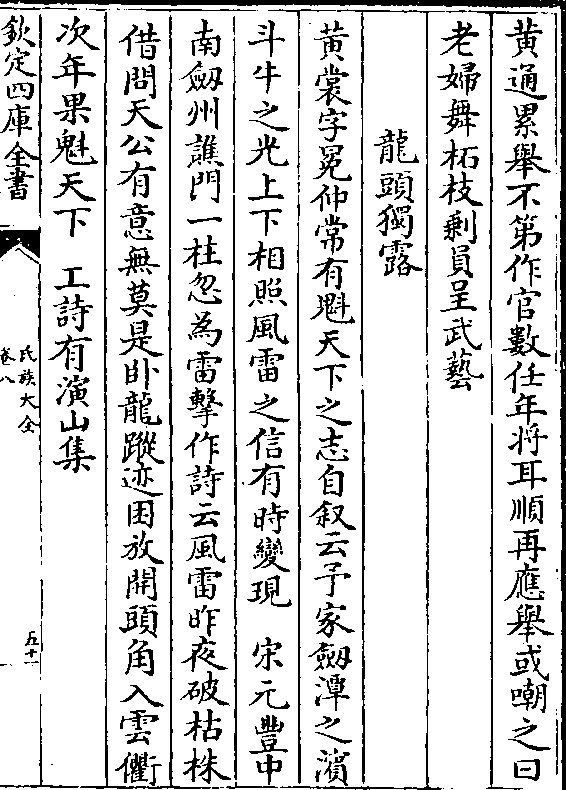 黄通累舉不第作官數任年将耳順再應舉或嘲之曰
老婦舞柘枝剩員呈武藝
龍頭獨露
黄裳字冕仲常有魁天下之志自叙云予家劔潭之濵
斗牛之光上下相照風雷之信有時變現　宋元豐中
南劔州譙門一柱忽為雷擊作詩云風雷昨夜破枯株
借問天公有意無莫是卧龍蹤迹困放開頭角入雲衢
次年果魁天下　工詩有演山集
欽定四庫全書
氏族大全
卷八
五十一